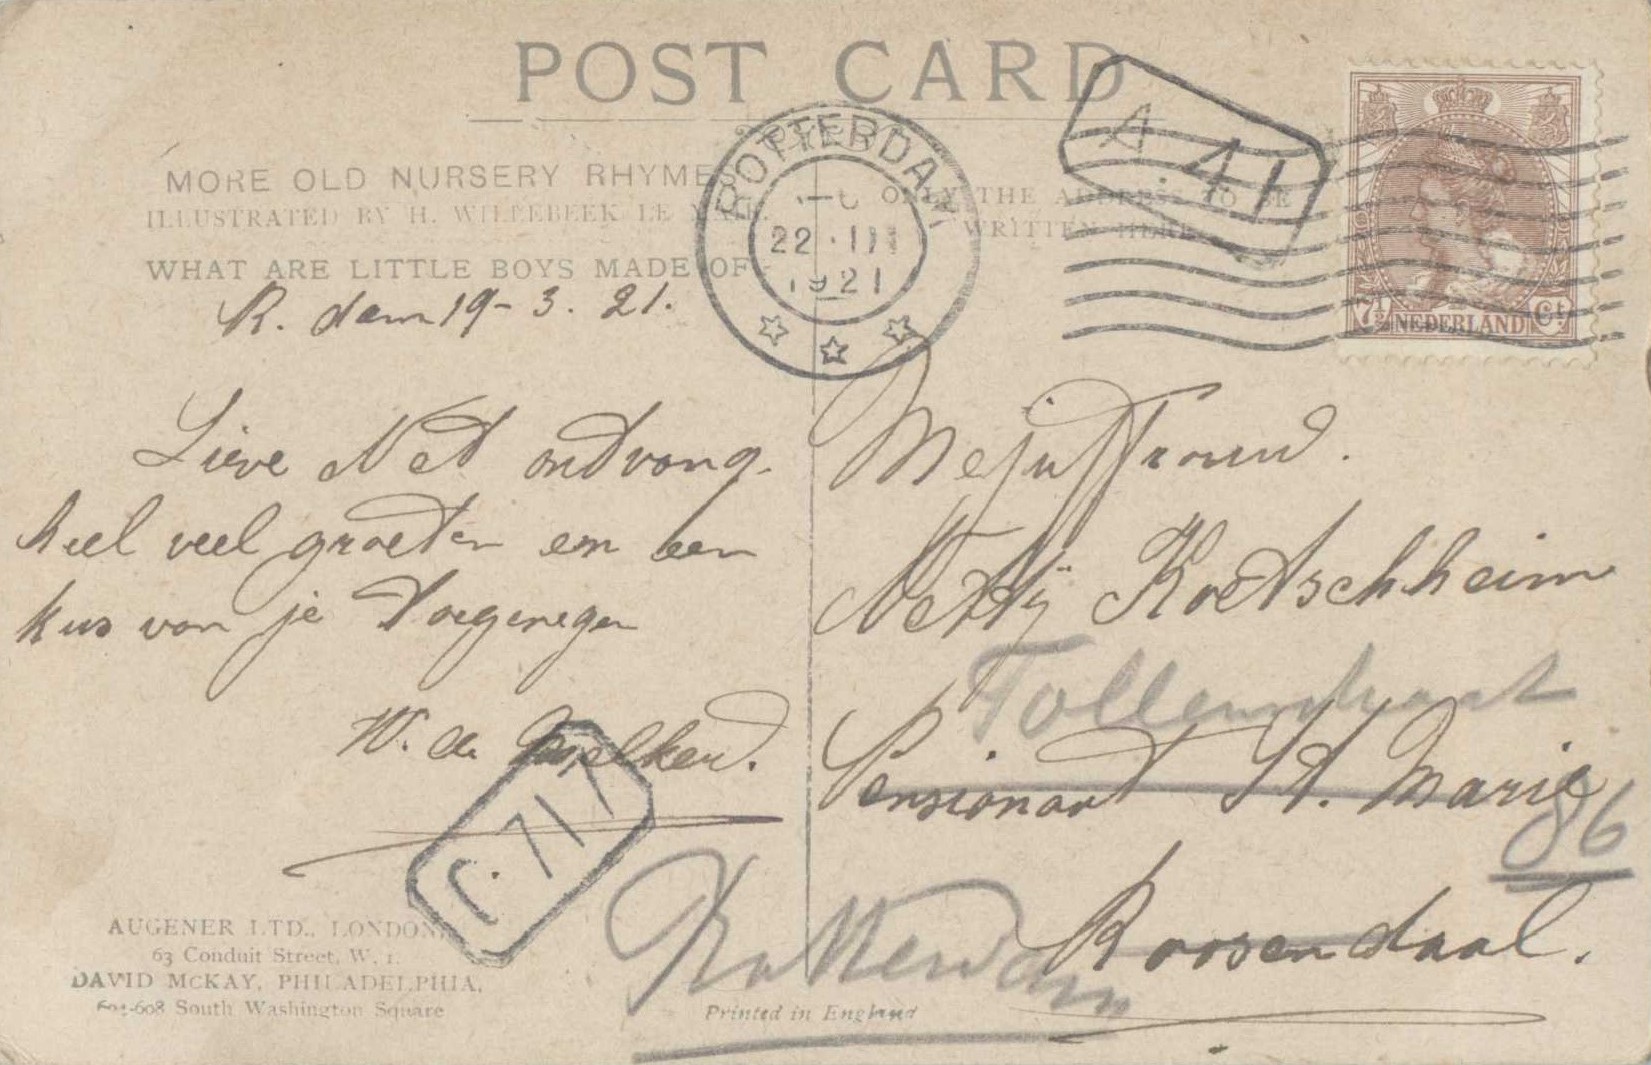 POST CARD
MORE OLD NURSERY RHYMES
ILLUSTRATED BY H. WILLEBEEK LE MAIR.
WHAT ARE LITTLE BOYS MADE OF
ONLY THE ADDRESS TO BE
WRITTEN HERE
ROTTERDAM
22 · III
1921
A. 41
7½ NEDERLAND Ct
R. dam 19-3. 21.
Lieve Net ontvang
heel veel groeten en een
kus van je toegenegen
W. de
C. 717
Mejuffrouw.
Netty Koetschheim
Tollenstraat
Pensionat St. Marie
86
Roosendaal.
Rotterdam
AUGENER LTD., LONDON,
63 Conduit Street, W. 1.
DAVID McKAY, PHILADELPHIA,
604-608 South Washington Square
Printed in England